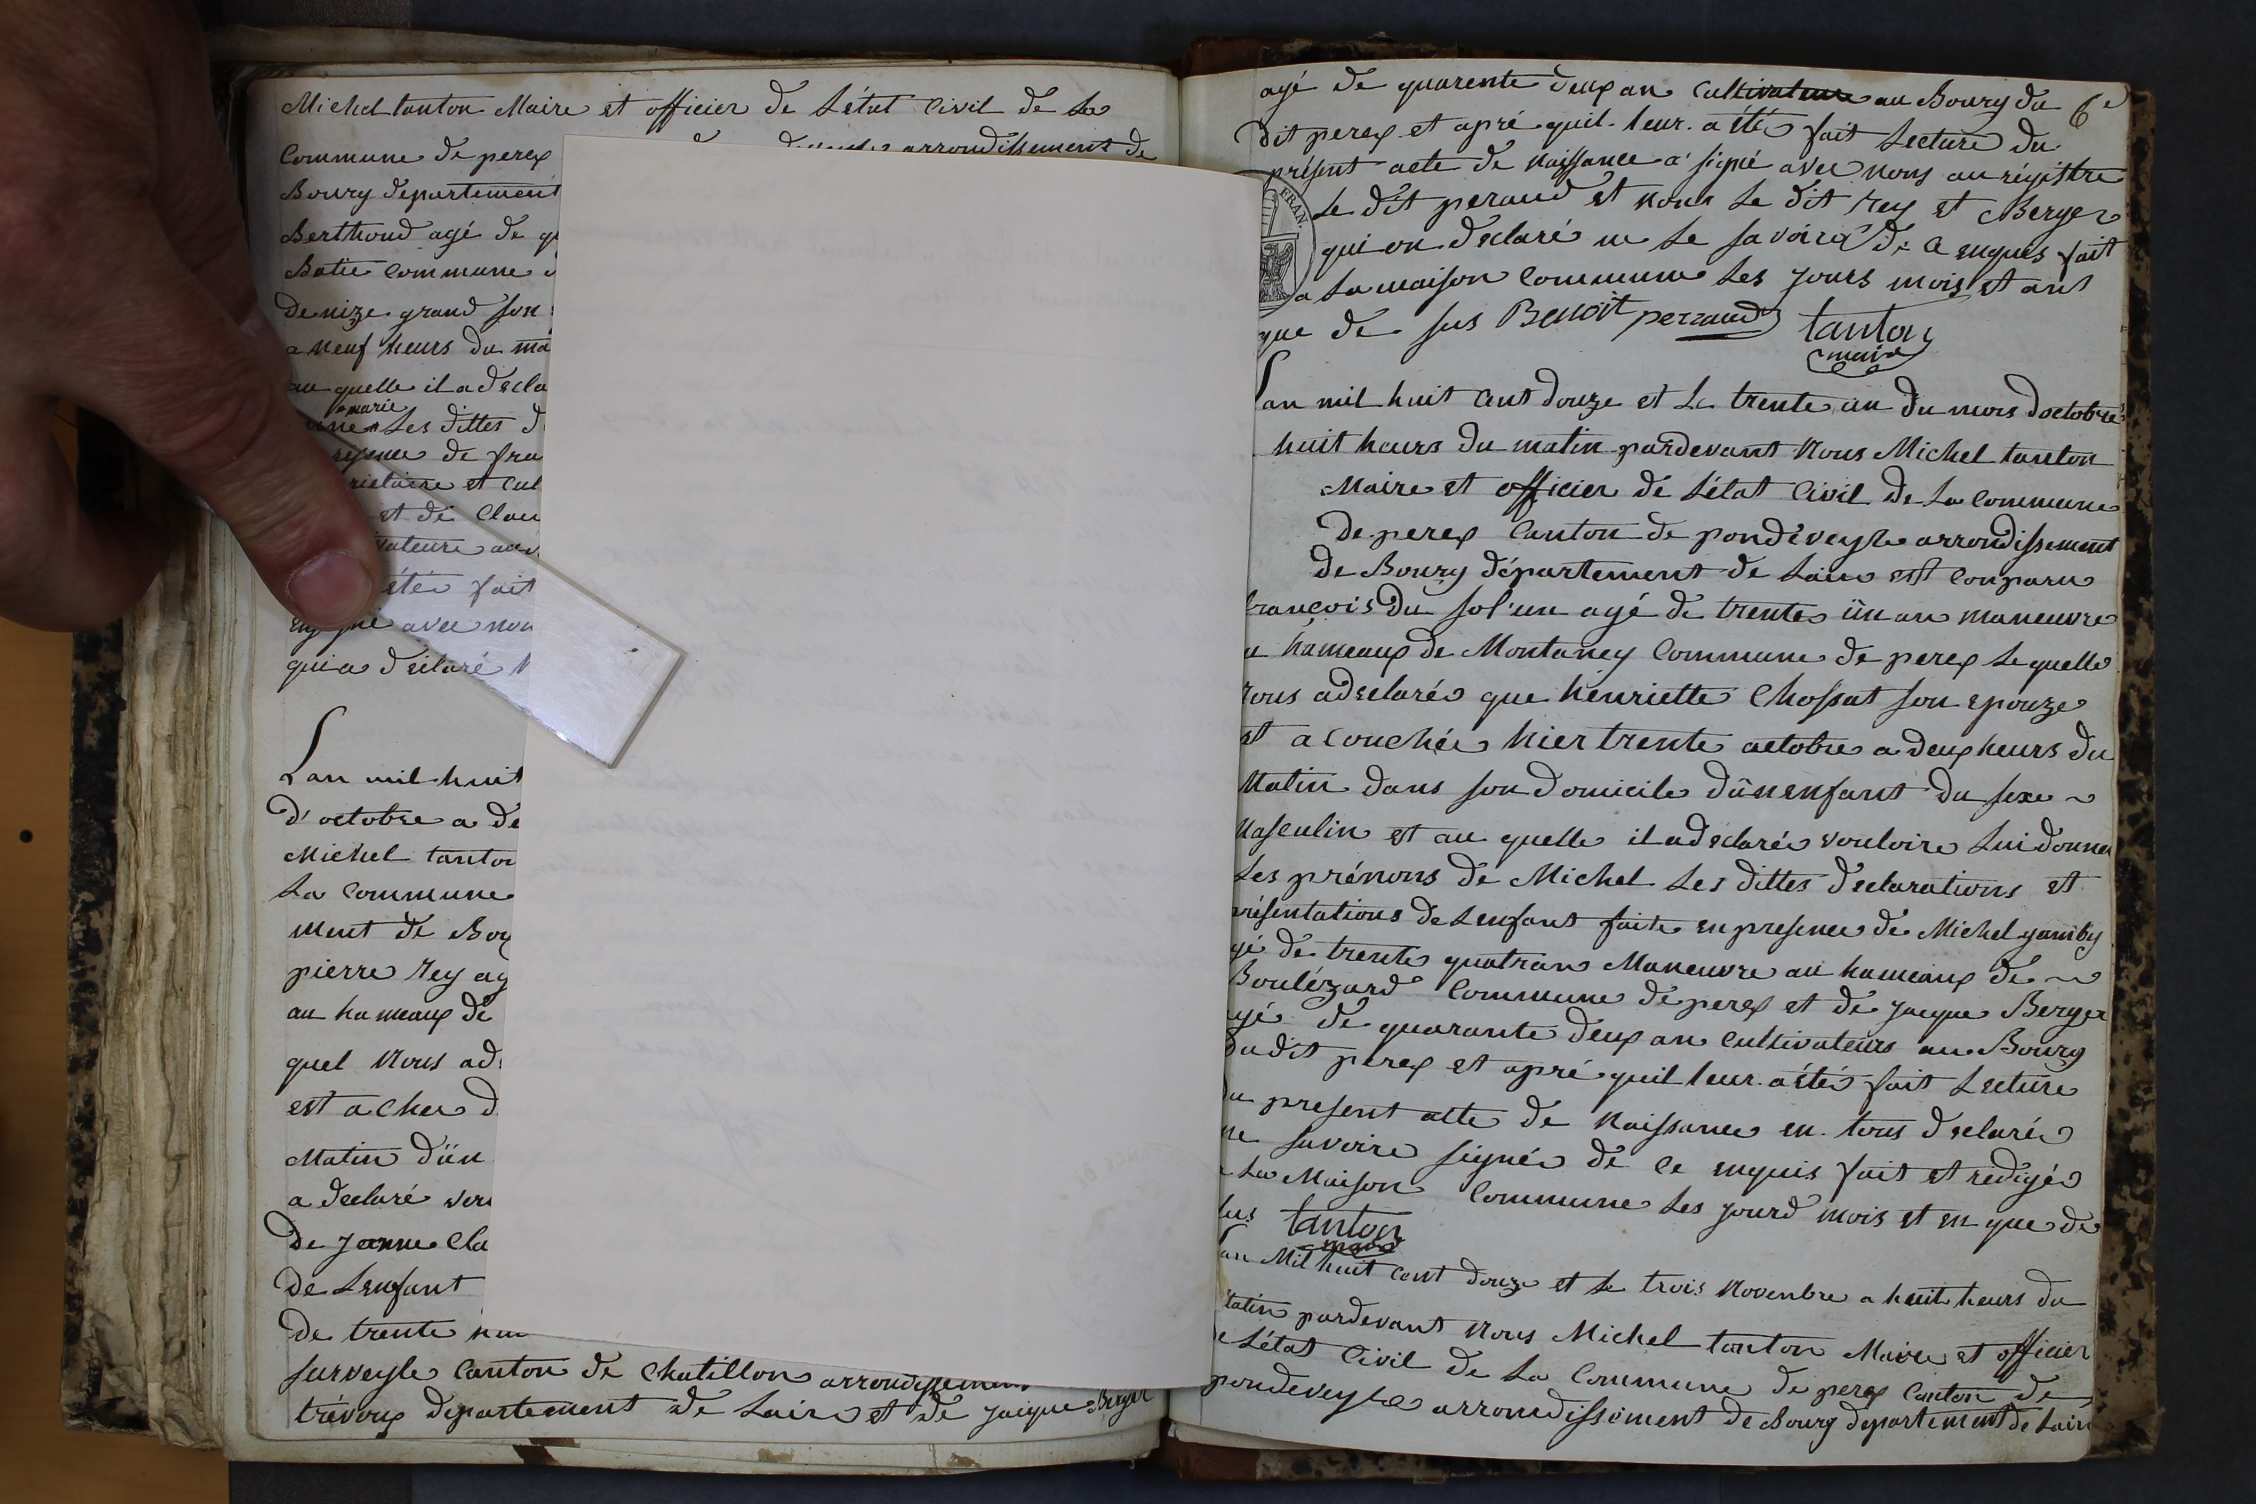 Michel tanton Maire et officier de Létat Civil de La
Commune de perex
arrondissement de
Bourg departement
Berthoud agé de
Batie Commune
Denize grand
a neuf heurs du
au quelle il a decla
marie
Les dittes
de fra
et cul
et de Clau
étée fait
avec nou
qui a déclaré
Lan mil huit
d'octobre a de
Michel tanton
La Commune
ment de Bo
pierre rey ag
au hameaux de
quel nous ad
est a cher d
Matin dün
a declaré vou
De jeanne Cla
De Lenfant
De trente
surveyle Canton de Chatillon arrondissement
trévoux département de Lain et de jacque Berger
6e
agé de quarente deux an Cultivateure au Bourg du
dit perex et apré quil leur a étée fait Lecture du
présent acte de naissance a signé avec nous au régistre
FRAN.
Le dit peraud et nous Le dit rey et Berger
qui on déclaré ne Le savoire de C enques fait
a La maison Commune Les jours mois et ant
que de sus Benoit perraud tanton
maire
Lan mil huit Cent douze et Le trente ün du mois doctobre
huit heurs du matin pardevant Nous Michel tanton
Maire et officier de Létat Civil de La Commune
De perex Canton de pondeveyle arrondissement
de Bourg département de Lain est Conparu
francois du sol'un agé de trente ün an maneuvre
hameaux de Montaney Commune de perex Le quelle
nous a déclarée que henriette Chossat son epouze
et a Couchée hier trente octobre a deux heurs du
Matin dans son domicile dün enfant du sexe
Masculin et au quelle il a déclarée vouloire Lui donner
Les prénoms de Michel Les dittes déclarations et
présentations de Lenfant faite en presence de Michel gamby
gé de trente quatran Maneuvre au hameaux de
Boulézard Commune de perex et de jacque Berger
agé de quarante deux an Cultivateurs au Bourg
du dit perex et apré quil leur a étée fait Lecture
du present atte de naissance en tous déclarée
ne savoire signée de Ce enquis fait et redigée
a La Maison Commune Les jourd mois et en que de
sus tanton
maire
Lan Mil huit Cent douze et Le trois Novenbre a huit heurs du
Matin pardevant Nous Michel tanton Maire et officier
de Létat Civil de La Commune de perex Canton de
pondeveyle arrondissement de Bourg departement de Lain